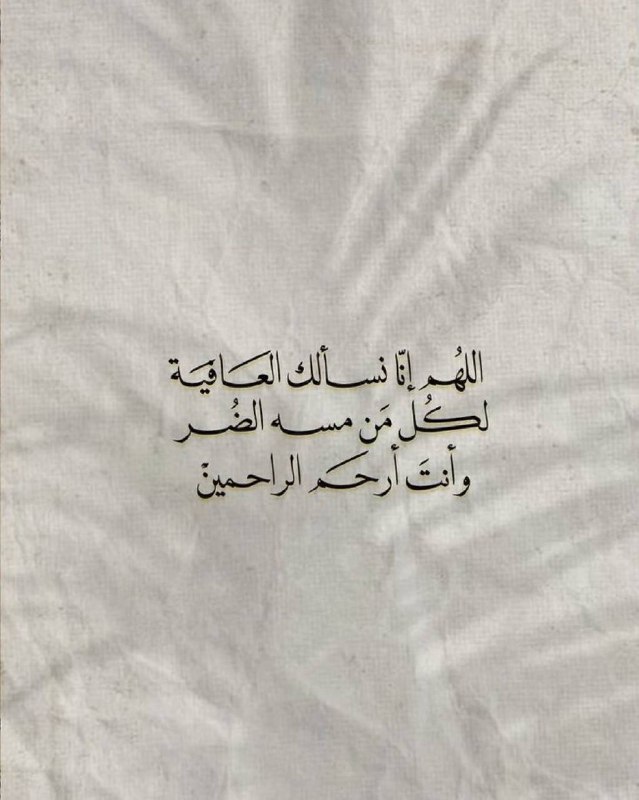 اللهُم إنّا نسألك العَافيَة
لكُل مَن مسه الضُر
وأنتَ أرحَم الراحمينْ